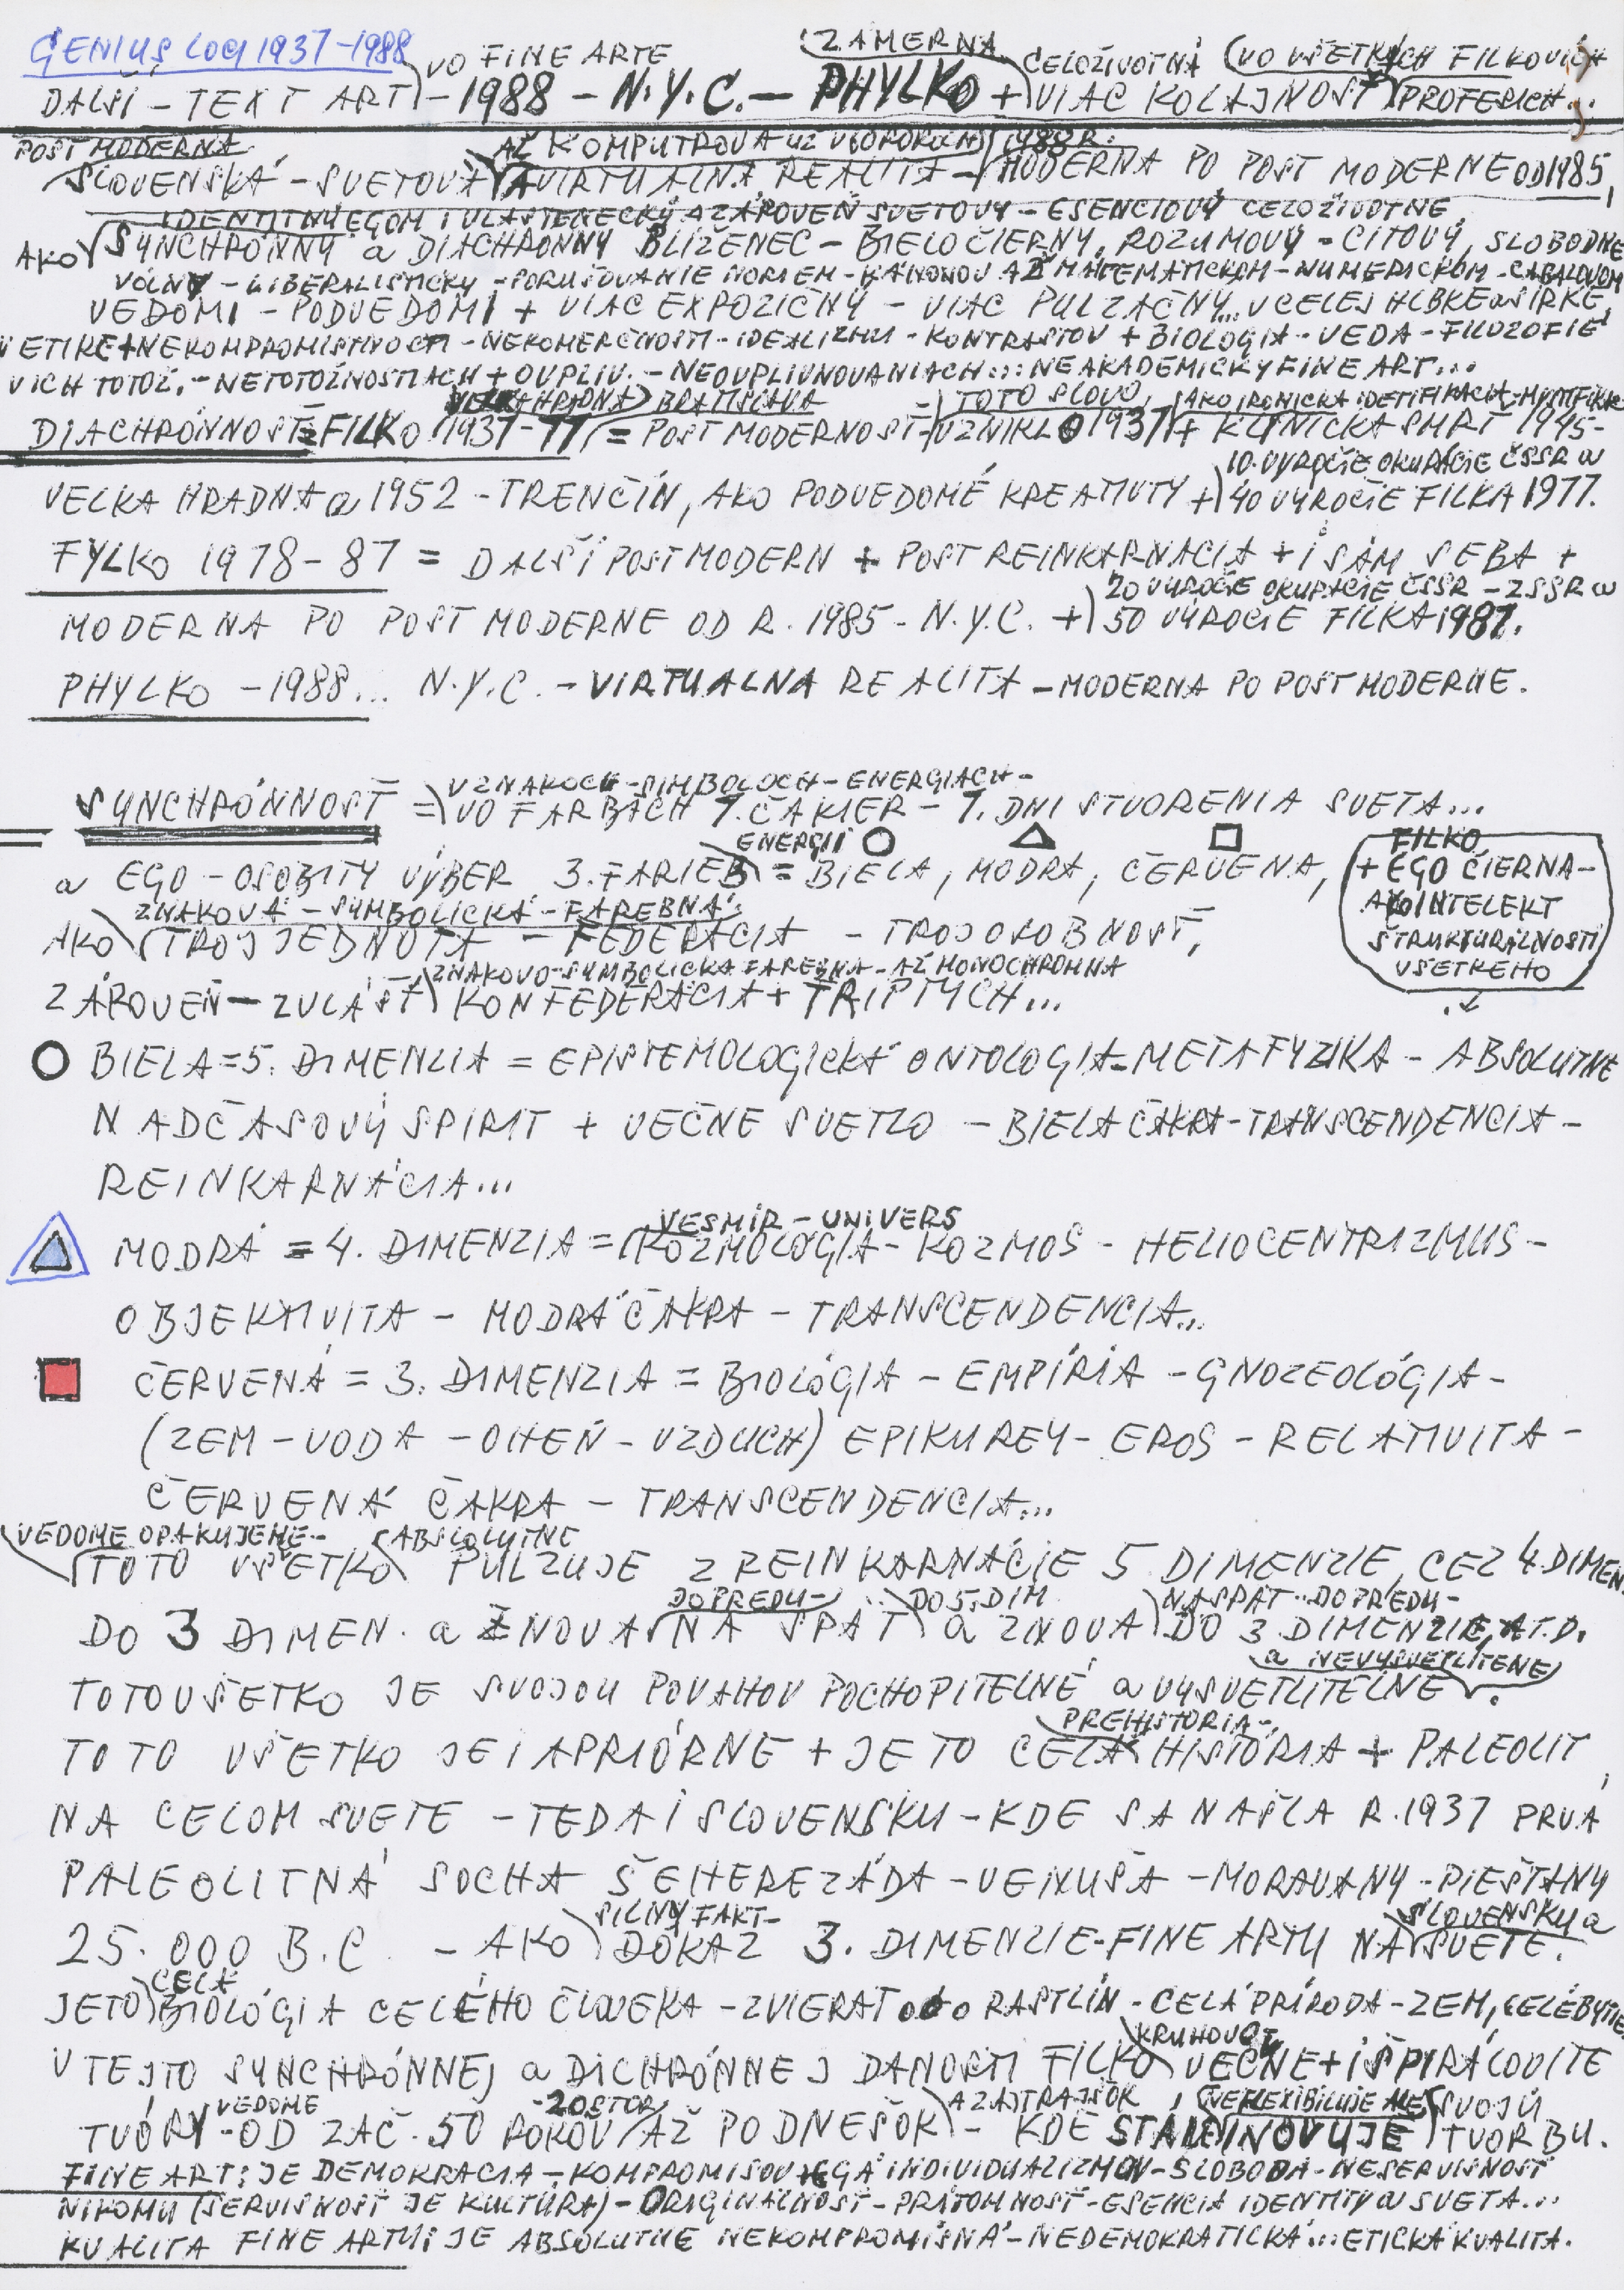 GENIUS LOCI 1937-1988
VO FINE ARTE
ZÁMERNÁ
CELOŽIVOTNÁ (VO VŠETKÝCH FILKOVÝCH
DALŠÍ - TEXT ART) - 1988 - N.Y.C. - PHYLKO + VIAC KOLAJNOSŤ PROFESIACH...
POST MODERNA
AŽ KOMPUTROVÁ 1988 R.
SLOVENSKÁ - SVETOVÁ A VIRTUALNA REALITA - MODERNA PO POST MODERNE OD 1985,
IDENTITNÝ EGOM I VLASTENECKÝ A ZÁROVEŇ SVETOVÝ - ESENCIOVÝ CELOŽIVOTNE
AKO SYNCHRÓNNY a DIACHRÓNNY BLÍŽENEC - BIELOČIERNY, ROZUMOVÝ - CITOVÝ, SLOBODNE
VOLNÝ - LIBERALISTICKÝ - PORUŠOVANIE NORIEM - KÁNONOV AŽ MATEMATICKOM - NUMERICKOM - CABALOVOM
VEDOMÍ - PODVEDOMÍ + VIAC EXPOZIČNÝ - VIAC PULZAČNÝ... V CELEJ HLBKE a ŠÍRKE
V ETIKE + NEKOMPROMISTIVOSTI - NEKOMERČNOSTI - IDEALIZMU - KONTRASTOV + BIOLOGIA - VEDA - FILOZOFIE
V ICH TOTOŽ. - NETOTOŽNOSTIACH + OVPLIV. - NEOVPLIVŇOVANIACH ... NEAKADEMICKÝ FINE ART...
VELKÁ HRADNÁ) BRATISLAVA TOTO SLOVO, AKO IRONICKÁ IDETIFIKÁCIA - MYSTIFIK
DIACHRÓNNOSŤ = FILKO 1937-77 = POST MODERNOSŤ - VZNIKLO 1937 + KLINICKÁ SMRŤ 1945-
10. VÝROČIE OKUPÁCIE ČSSR a
VELKA HRADNÁ a 1952 - TRENČÍN, AKO PODVEDOMÉ KREATIVITY + 40 VÝROČIE FILKA 1977.
FYLKO 1978-87 = DALŠÍ POSTMODERN + POST REINKARNÁCIA + I SÁM SEBA +
20 VÝROČIE OKUPÁCIE ČSSR - ZSSR a
MODERNA PO POST MODERNE OD R. 1985 - N.Y.C. + 50 VÝROČIE FILKA 1987.
PHYLKO - 1988... N.Y.C. - VIRTUALNA REALITA - MODERNA PO POST MODERNE.
V ZNAKOCH - SIMBOLOCH - ENERGIACH -
SYNCHRÓNNOSŤ = VO FARBÁCH 7. ČAKIER - 7. DNI STVORENIA SVETA...
ENERGII
FILKO
a EGO - OSOBITÝ VÝBER 3. FARIEB = BIELA, MODRÁ, ČERVENÁ,
+ EGO ČIERNA -
AKO INTELEKT
ŠTRUKTURÁLNOSTI
VŠETKEHO
ZNAKOVÁ - SYMBOLICKÁ - FAREBNÁ
AKO TROJJEDNOTA - FEDERÁCIA - TROJOSOBNOSŤ,
ZNAKOVO - SYMBOLICKÁ FAREBNÁ - AŽ MONOCHROMNÁ
ZÁROVEŇ - ZVLÁŠŤ KONFEDERÁCIA + TRIPTYCH...
BIELA = 5. DIMENZIA = EPISTEMOLOGICKÁ ONTOLOGIA - METAFYZIKA - ABSOLUTNE
NADČASOVÝ SPIRIT + VEČNE SVETLO - BIELA ČAKRA - TRANSCENDENCIA -
REINKARNÁCIA...
VESMÍR - UNIVERS
MODRÁ = 4. DIMENZIA = KOZMOLÓGIA - KOZMOS - HELIOCENTRIZMUS -
OBJEKTIVITA - MODRÁ ČAKRA - TRANSCENDENCIA...
ČERVENÁ = 3. DIMENZIA = BIOLÓGIA - EMPÍRIA - GNOZEOLÓGIA -
(ZEM - VODA - OHEŇ - VZDUCH) EPIKUREY - EROS - RELATIVITA -
ČERVENÁ ČAKRA - TRANSCENDENCIA...
VEDOME OPAKUJEME - ABSOLUTNE
TOTO VŠETKO PULZUJE Z REINKARNÁCIE 5 DIMENZIE, CEZ 4. DIMEN.
DOPREDU - DO 5. DIM NASPÄT - DOPREDU -
DO 3 DIMEN. a ZNOVA NA SPÄT a ZNOVA DO 3 DIMENZIE, A.T.D.
a NEVYSVETLITENE
TOTO VŠETKO JE SVOJOU POVAHOU POCHOPITELNÉ a VYSVETLITELNE.
PREHISTORIA -
TOTO VŠETKO JE I APRIÓRNE + JE TO CELÁ HISTÓRIA + PALEOLIT,
NA CELOM SVETE - TEDA I SLOVENSKU - KDE SA NAŠLA R. 1937 PRVÁ
PALEOLITNÁ SOCHA ŠEHEREZÁDA - VENUŠA - MORAVANY - PIEŠŤANY
SILNÝ FAKT - SLOVENSKU a
25.000 B.C. - AKO DÔKAZ 3. DIMENZIE - FINE ARTU NA SVETE.
CELÁ
JE TO BIOLÓGIA CELÉHO ČLOVEKA - ZVIERAT RASTLÍN - CELÁ PRÍRODA - ZEM, CELÉ BYTIE
KRUHOVO
V TEJTO SYNCHRÓNNEJ a DICHRÓNNEJ DANOSTI FILKO VEČNE + I ŠPIRÁLOVITE
VEDOME - 20 STOR. A ZAJTRAJŠOK, REFLEXIBILUJE ALE SVOJU
TVORÍ - OD ZAČ. 50 ROKOV AŽ PO DNEŠOK - KDE STÁLE INOVUJE TVORBU.
FINE ART: JE DEMOKRACIA - KOMPROMISOV INDIVIDUALIZMOV - SLOBODA - NESERVISNOSŤ
NIKOMU (SERVISNOSŤ JE KULTÚRA) - ORIGINALNOSŤ - PRÍTOMNOSŤ - ESENCIA IDENTITY a SVETA...
KVALITA FINE ARTU: JE ABSOLUTNE NEKOMPROMISNÁ - NEDEMOKRATICKÁ... ETICKÁ KVALITA.